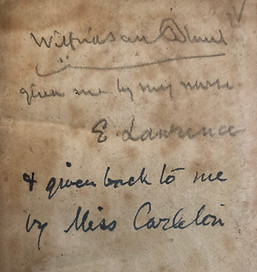 Blunt
given me by my nurse
E Lawrence
& given back to me
by Miss Carleton